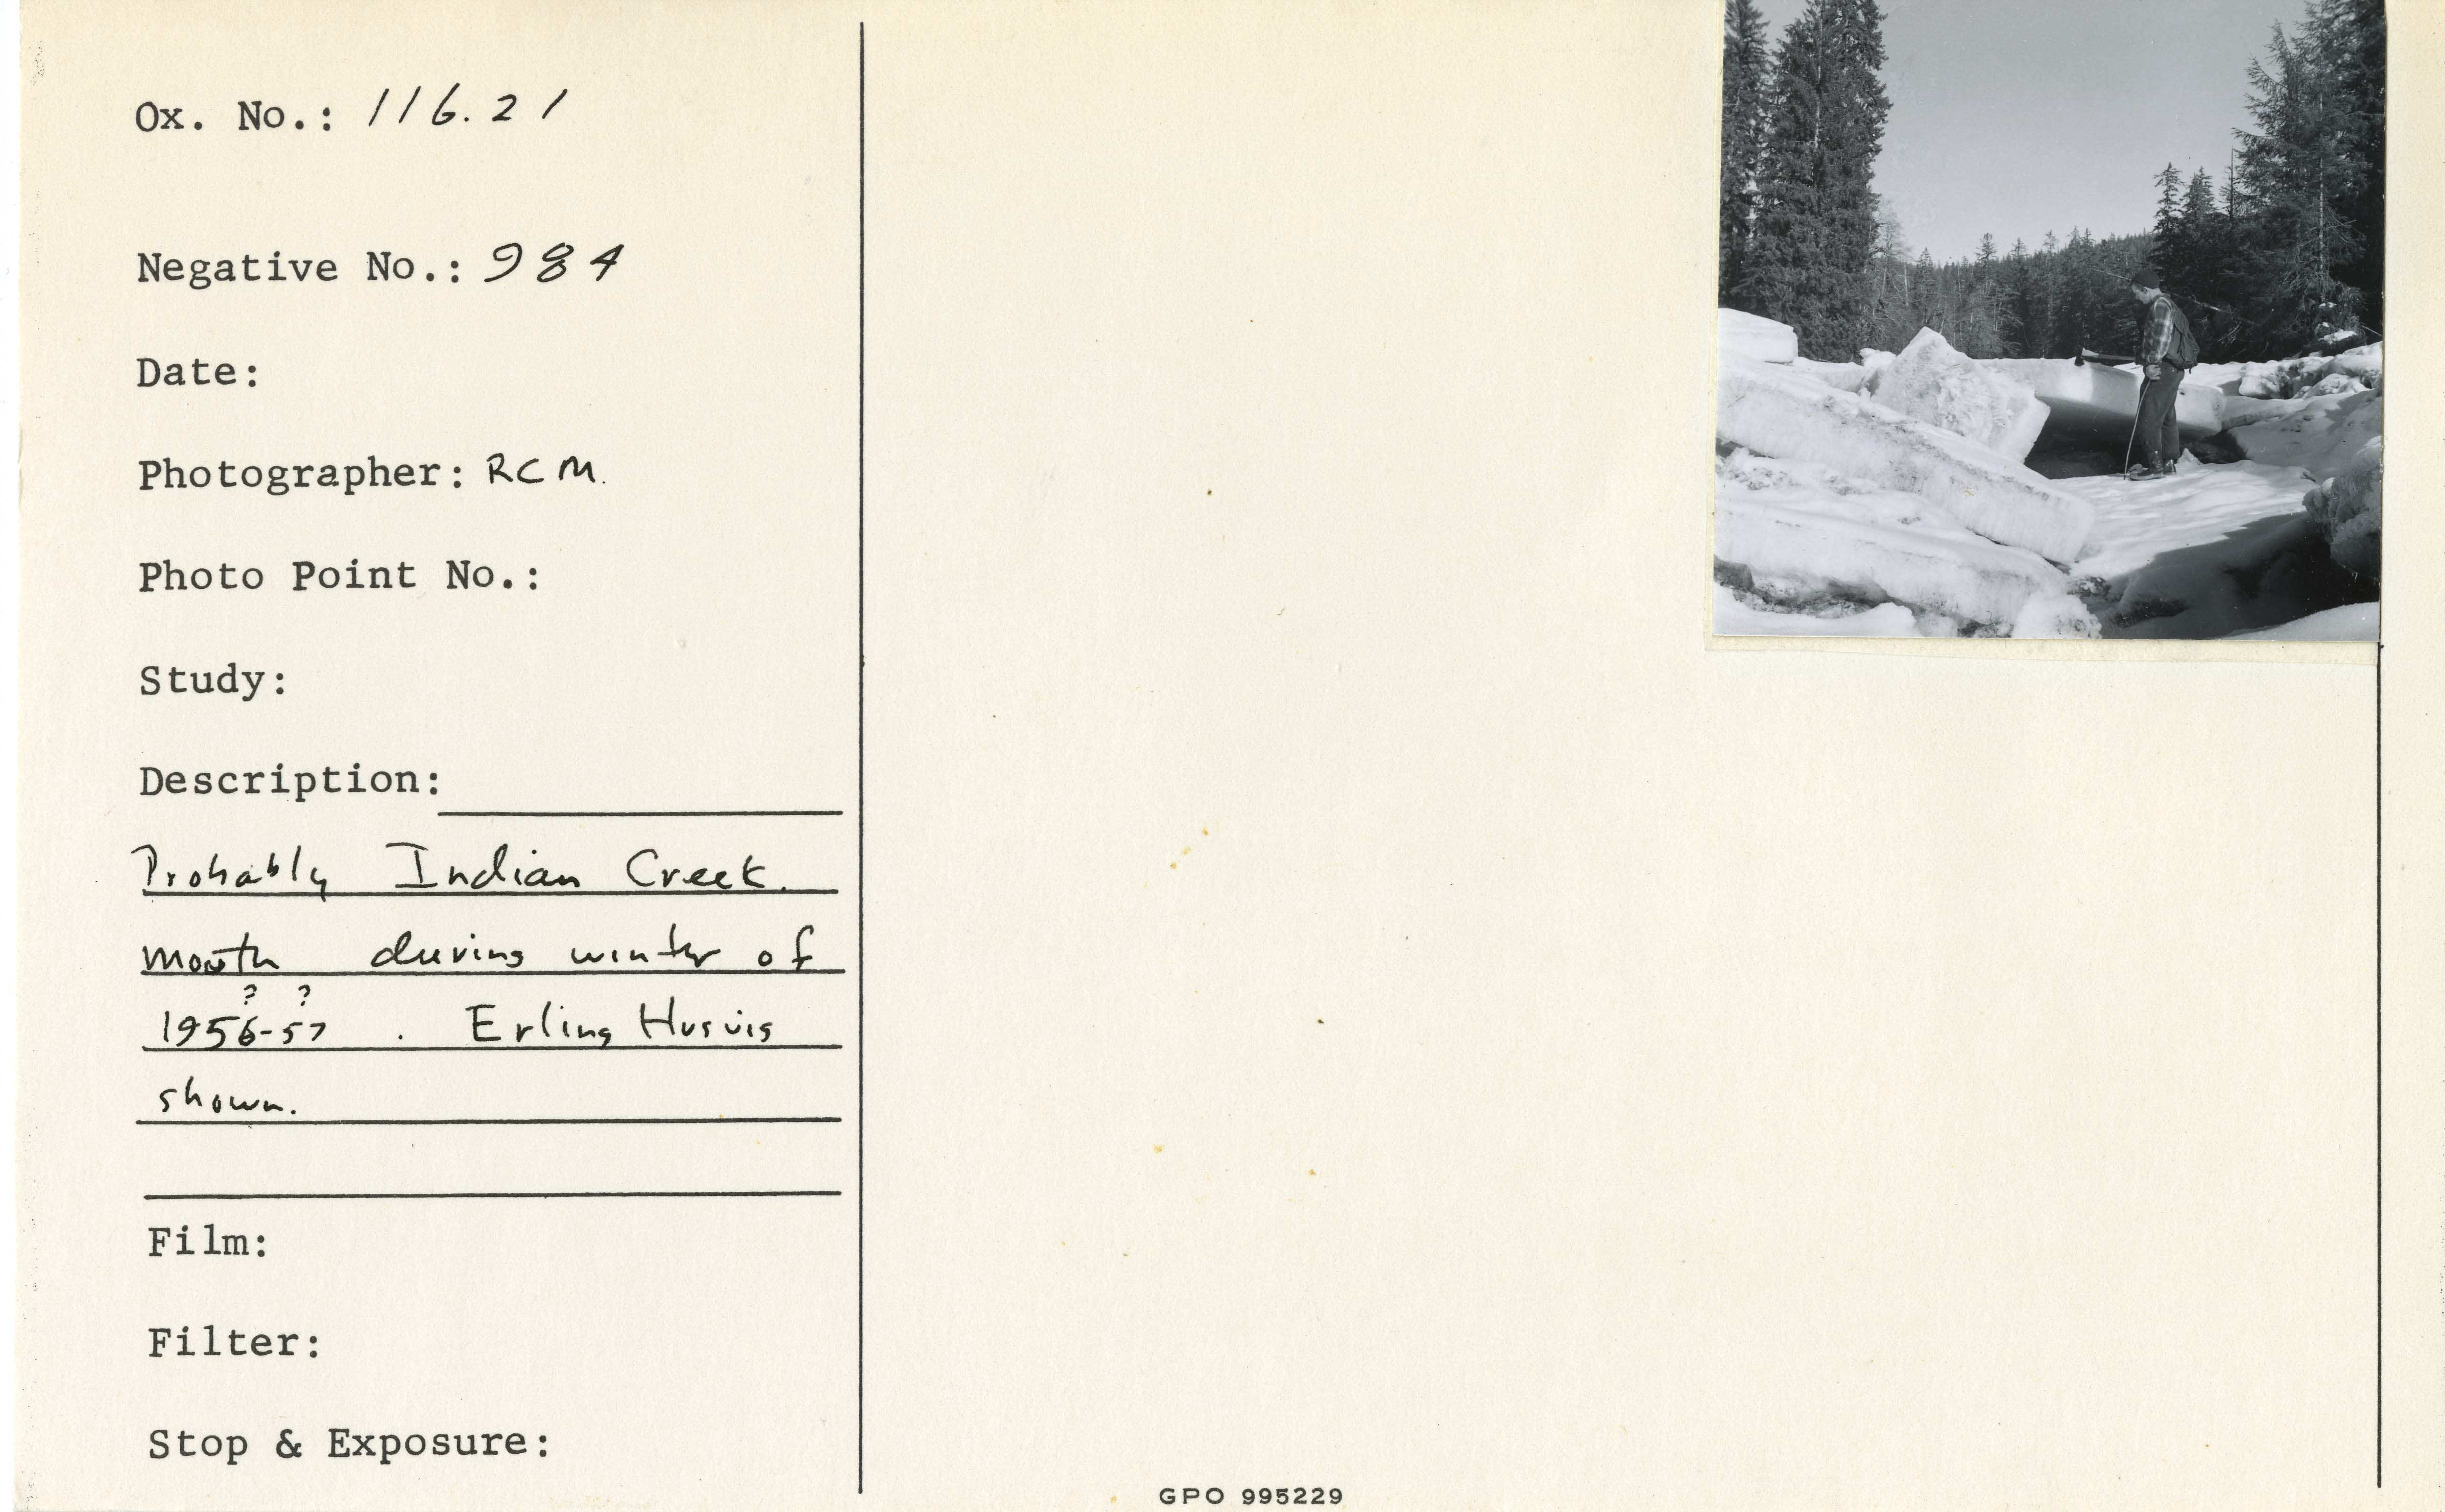 Ox. No.: 116.21
Negative No.: 984
Date:
Photographer: RCM.
Photo Point No.:
Study:
Description:
Probably Indian Creek.
mouth during winter of
? ?
1956-57 . Erling Husvig
shown.
Film:
Filter:
Stop & Exposure:
GPO 995229